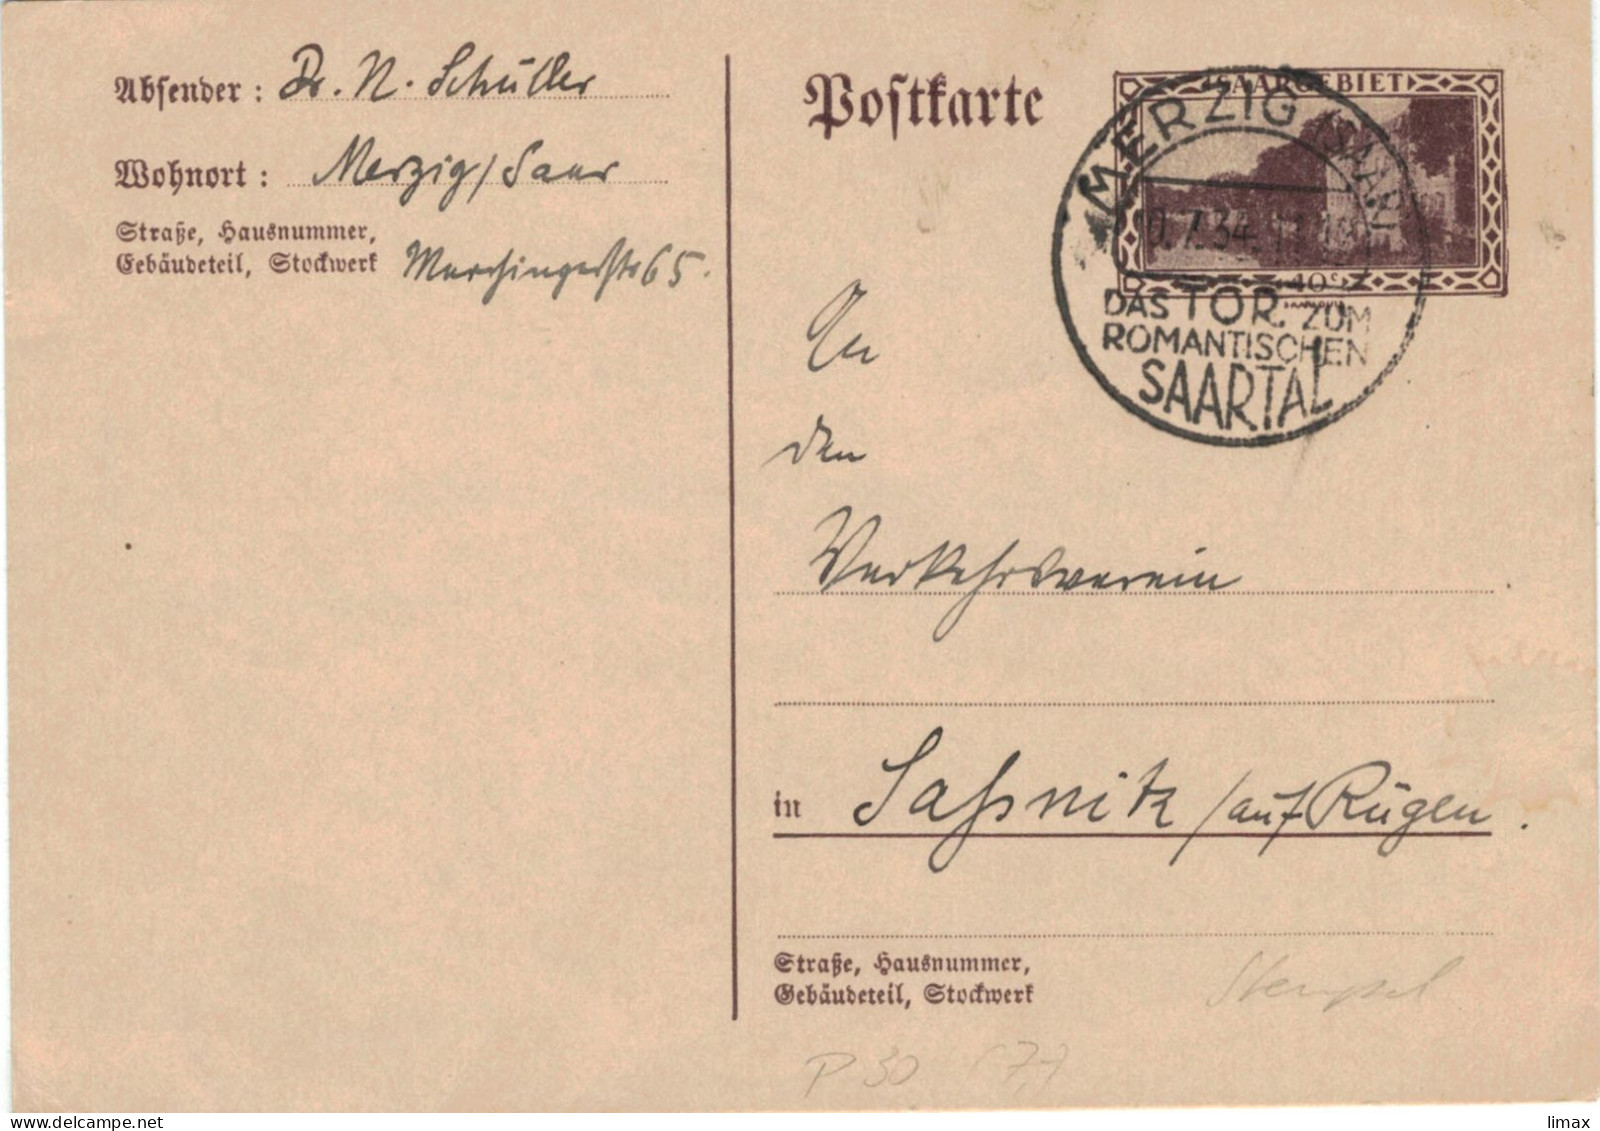 Absender : Dr. N. Schüller
Wohnort : Merzig/Saar
Straße, Hausnummer,
Gebäudeteil, Stockwerk
65.
Postkarte
SAARGEBIET
MERZIG (SAAR)
7.34.
40 c
DAS TOR ZUM
ROMANTISCHEN
SAARTAL
An
den
Verkehrsverein
in Saßnitz /auf Rügen.
Straße, Hausnummer,
Gebäudeteil, Stockwerk
Stempel
P 30
limax